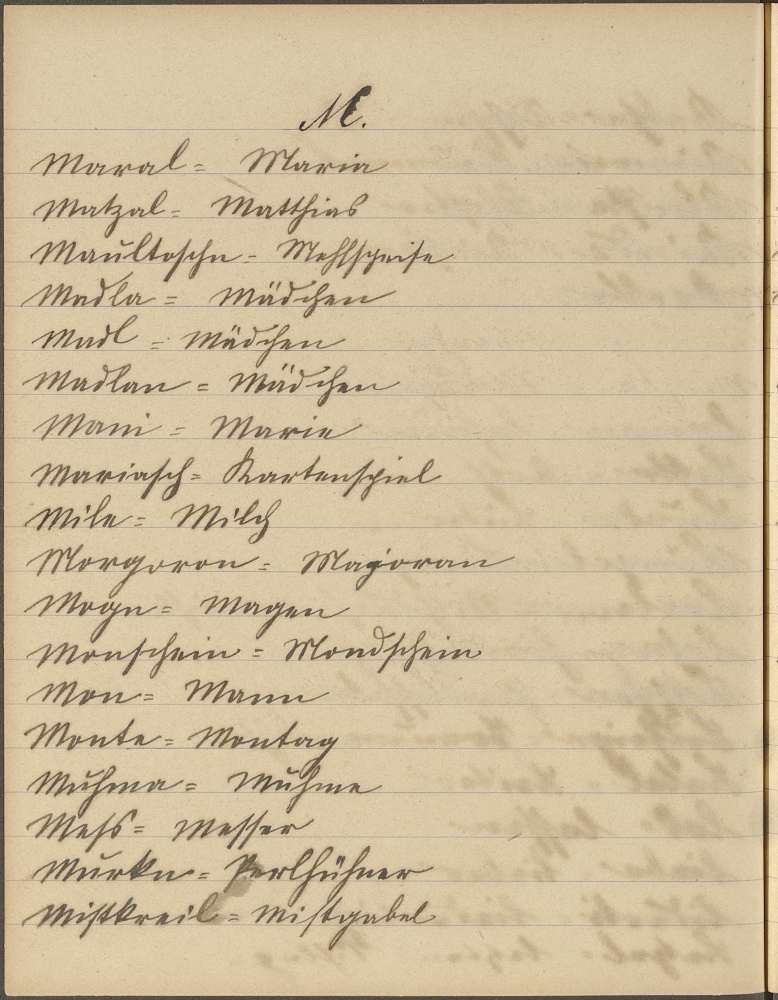 M.
Maral = Maria
Matzal = Matthias
Maultoschn = Mehlspeise
Madla = Mädchen
Madl = Mädchen
Madlan = Mädchen
Mani = Marie
Mariasch = Kartenspiel
Mile = Milch
Morgoron = Majoran
Mogn = Magen
Monschein = Mondschein
Mon = Mann
Monte = Montag
Muhma = Muhme
Mess = Messer
Murkn = Perlhühner
Mistkreil = Mistgabel